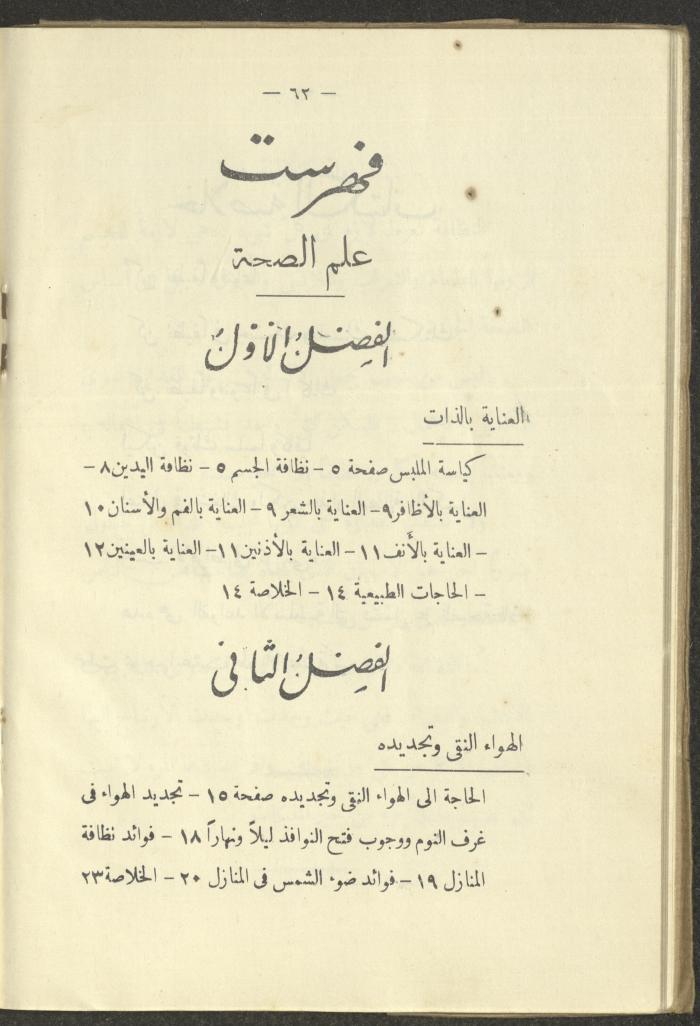 — ٦٢ —
فهرست
علم الصحة
الفصل الأوّل
العناية بالذات
كياسة الملبس صفحة ٥ - نظافة الجسم ٥ - نظافة اليدين ٨ -
العناية بالأظافر ٩ - العناية بالشعر ٩ - العناية بالفم والأسنان ١٠
- العناية بالأنف ١١ - العناية بالأذنين ١١ - العناية بالعينين ١٢
- الحاجات الطبيعية ١٤ - الخلاصة ١٤
الفصل الثاني
الهواء النقى وتجديده
الحاجة الى الهواء النقى وتجديده صفحة ١٥ - تجديد الهواء فى
غرف النوم ووجوب فتح النوافذ ليلاً ونهاراً ١٨ - فوائد نظافة
المنازل ١٩ - فوائد ضوء الشمس فى المنازل ٢٠ - الخلاصة ٢٣